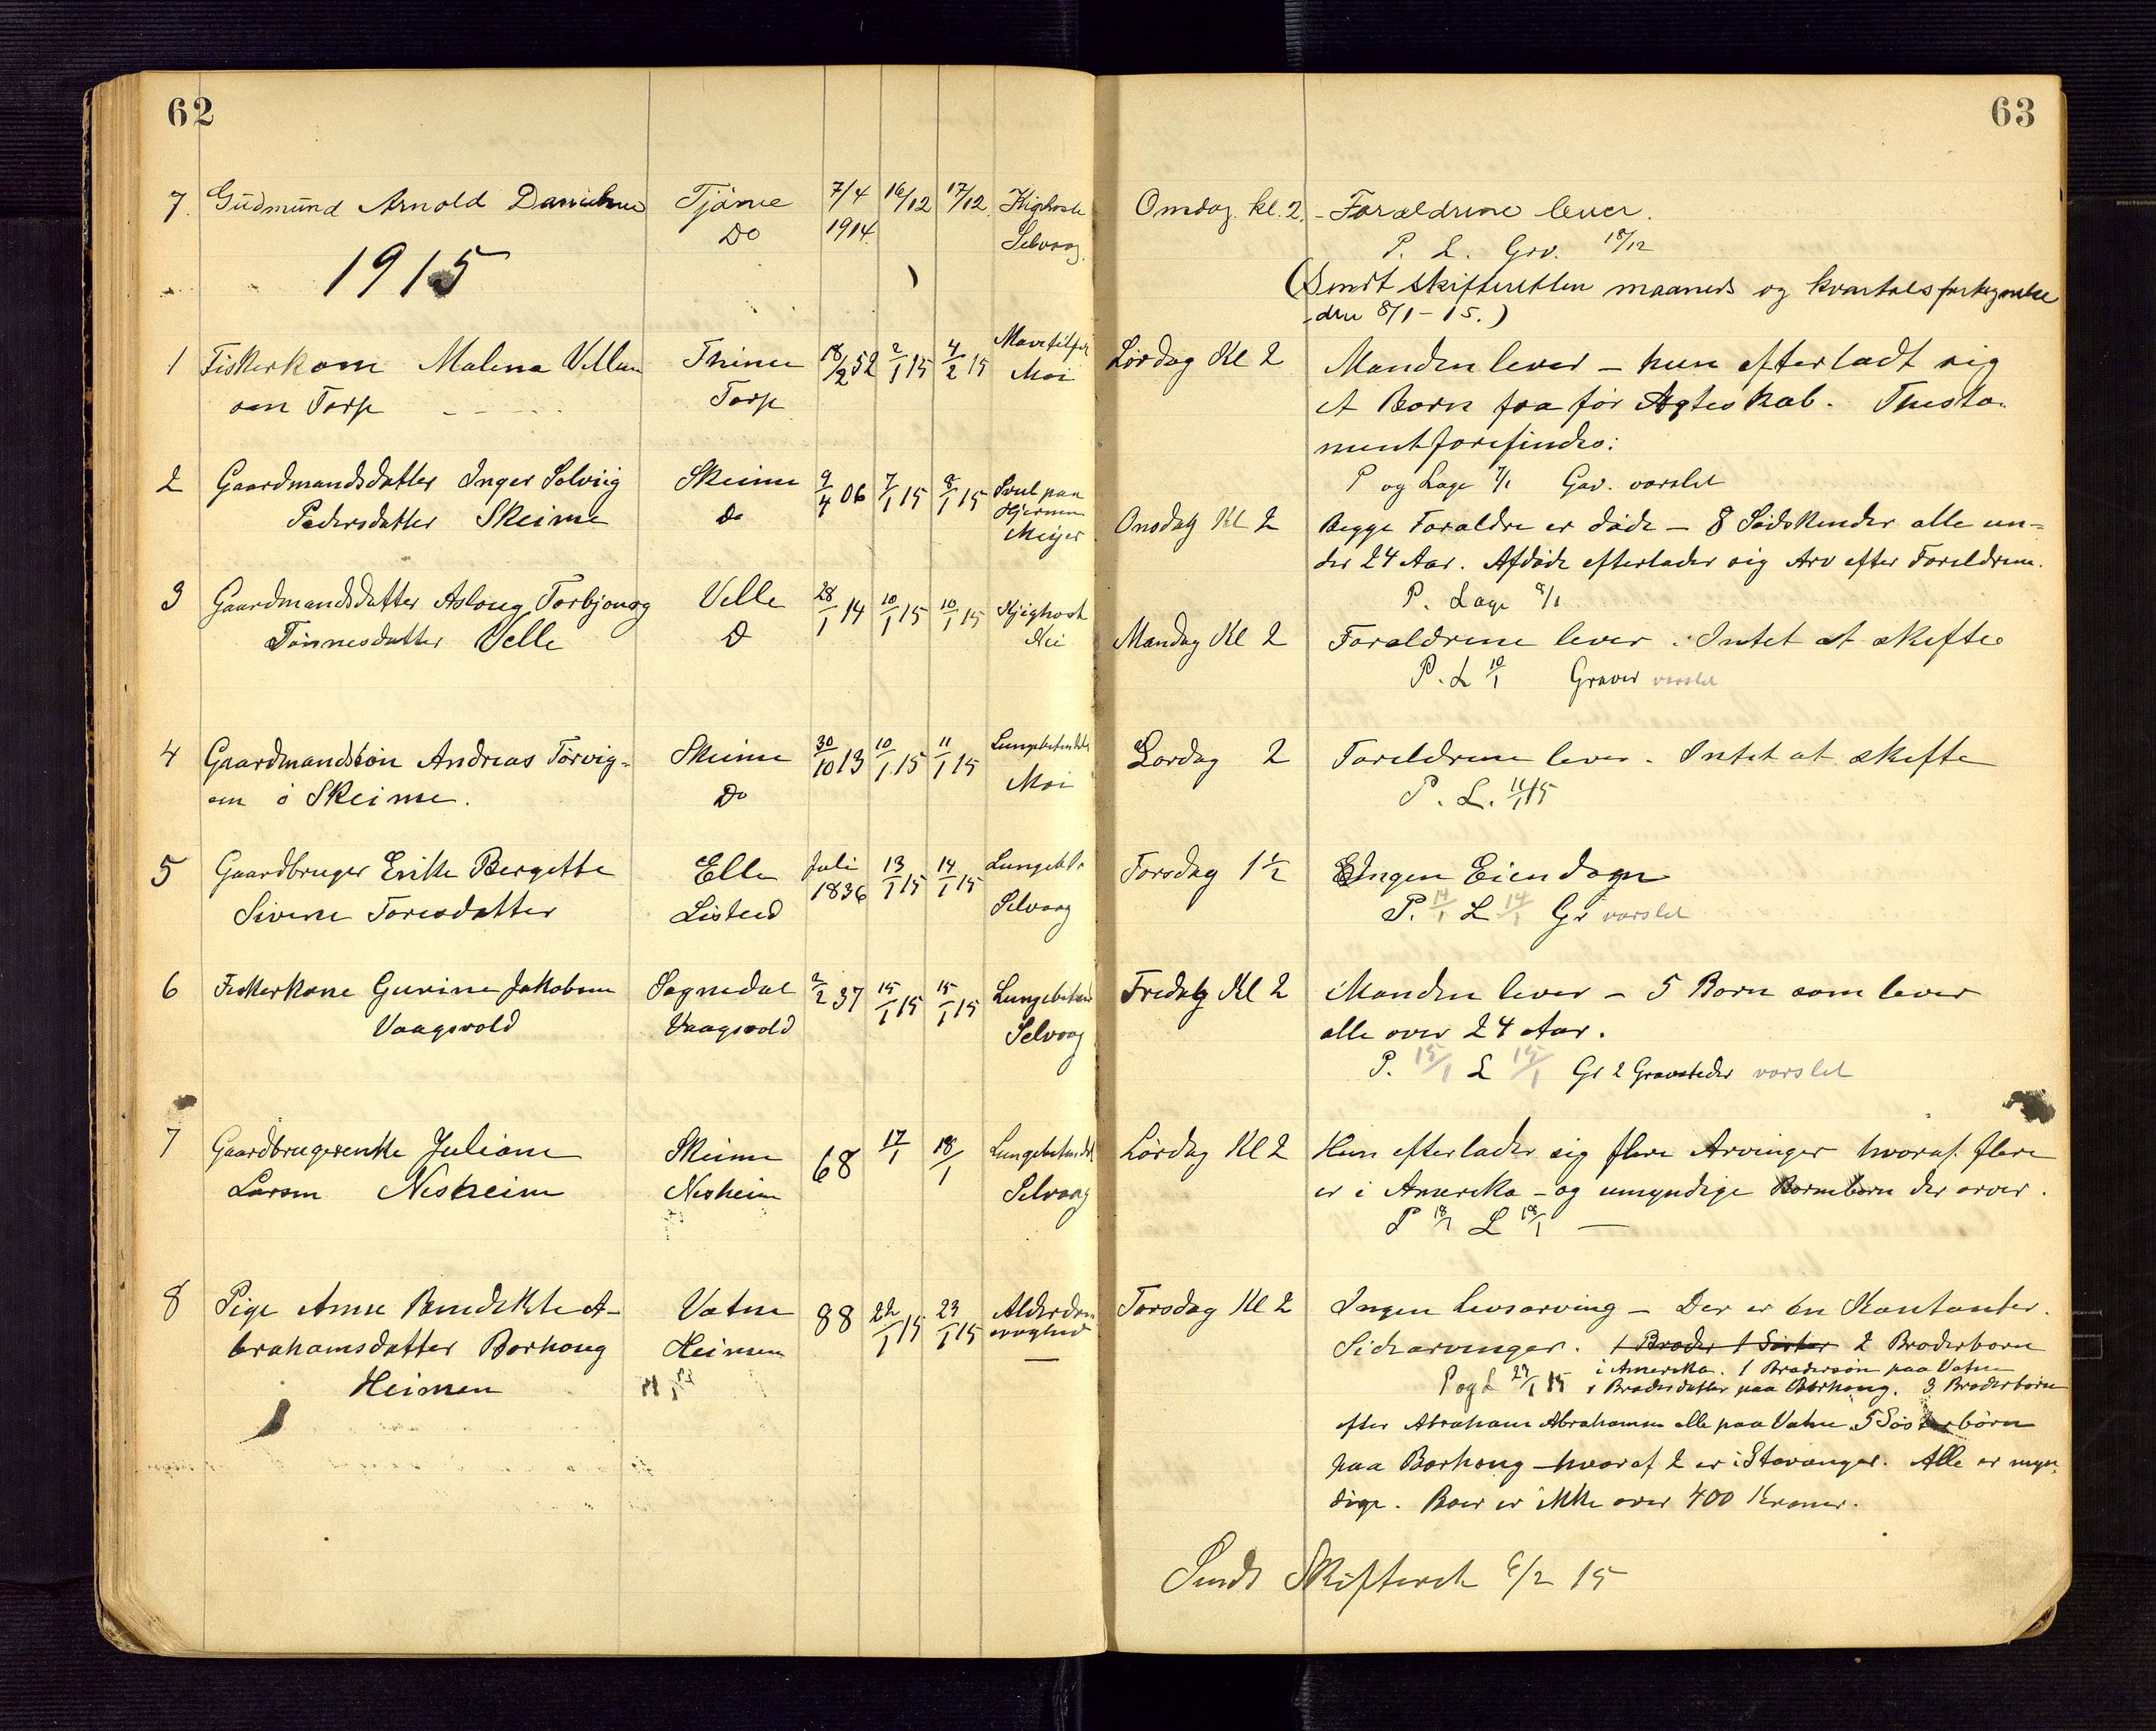 62
63
7. Gudmund Arnold Danielsen Tjörve 7/4 16/12 17/12 Kighoste Onsdag. kl. 2. - Forældrene lever.
Do 1914 Selvaag P. L. Grv. 18/12
1915 (Sendt skifteretten maaneds og kvartalsfortegnelse
den 8/1 - 15.)
1 Fiskerkone Malena Villum Thime 18/2 52 2/1 15 4/2 15 Lördag Kl 2 Manden lever - hun efterladt sig
sen Torp Torp Moi et Barn fra för Ægteskab. Thesta-
ment forefindes:
2 Gaardmandsdatter Inger Solveig Skeime 9/4 06 7/1 15 8/1 15 Svul paa P og Lage 7/1 Gav. varslet
Pedersdatter Skeime Do Hjernen Onsdag Kl 2 Begge Foraldre er döde - 8 Södskender alle un-
Meijer der 24 Aar. Afdöde efterlader sig Arv efter Foreldrene.
3 Gaardmandsdatter Aslaug Torbjourg Velle 28/1 14 10/1 15 10/1 15 Kjighost P. Lage 8/1
Tönnesdatter Velle D Mandag Kl 2 Foraldrene lever. Intet at skifte
P. L 10/1 Graver varslet
4 Gaardmandsön Andreas Torvig- Skeime 30/10 13 10/1 15 11/1 15 Lungebetendelse Lordag 2 Foreldrene lever. Intet at skifte
sen ö Skeime. Do Moi P. L. 11/1 15
5 Gaardbruger Enke Bergette Elle Juli 13/1 15 14/1 15 Lungebt. Torsdag 1 1/2 Ingen Eiendom
Sivene Toresdatter Listeid 1836 Selvaag P. 14/1 L 14/1 Gr varslet
6 Fiskerkone Gurine Jakobsen Sagnedal 2/2 37 15/1 15 15/1 15 Lungebetend Fredag Kl 2 Manden lever - 5 Born som lever
Vaagsvold Vaagsvold Selvaag alle over 24 Aar.
P. 15/1 L 15/1 Gr 2 Gravsteder varslet
7 Gaardbrugerenke Juliane Skeime 68 17/1 18/1 Lungebetendl Lördag Kl 2 Hun efterlader sig flere Arvinger hvoraf flere
Larsen Nesheim Nesheim Selvaag er i Amerika - og umyndige Barnebarn der arver.
P 18/1 L 18/1 -
8 Pige Anne Bendekte A- Vatne 88 22/1 15 23/1 15 Alderdom Torsdag Kl 2 Ingen livsarving - Der er en Kontanter.
brahamsdatter Borhoug Heimen svaghed Sidearvinger. 1 Broder 1 Söster 2 Broderborn
Heimen i Amerika. 1 Brodersön paa Vatne
P og L 23/1 15 1 Brodersdatter paa Borhoug. 3 Broderborn
efter Abraham Abrahamsen alle paa Vatne 5 Sösterbörn
paa Borhoug - hvoraf 2 er i Stavanger. Alle er myn-
dige. Boer er ikke over 400 Kroner.
Sendt Skifteret 6/2 15